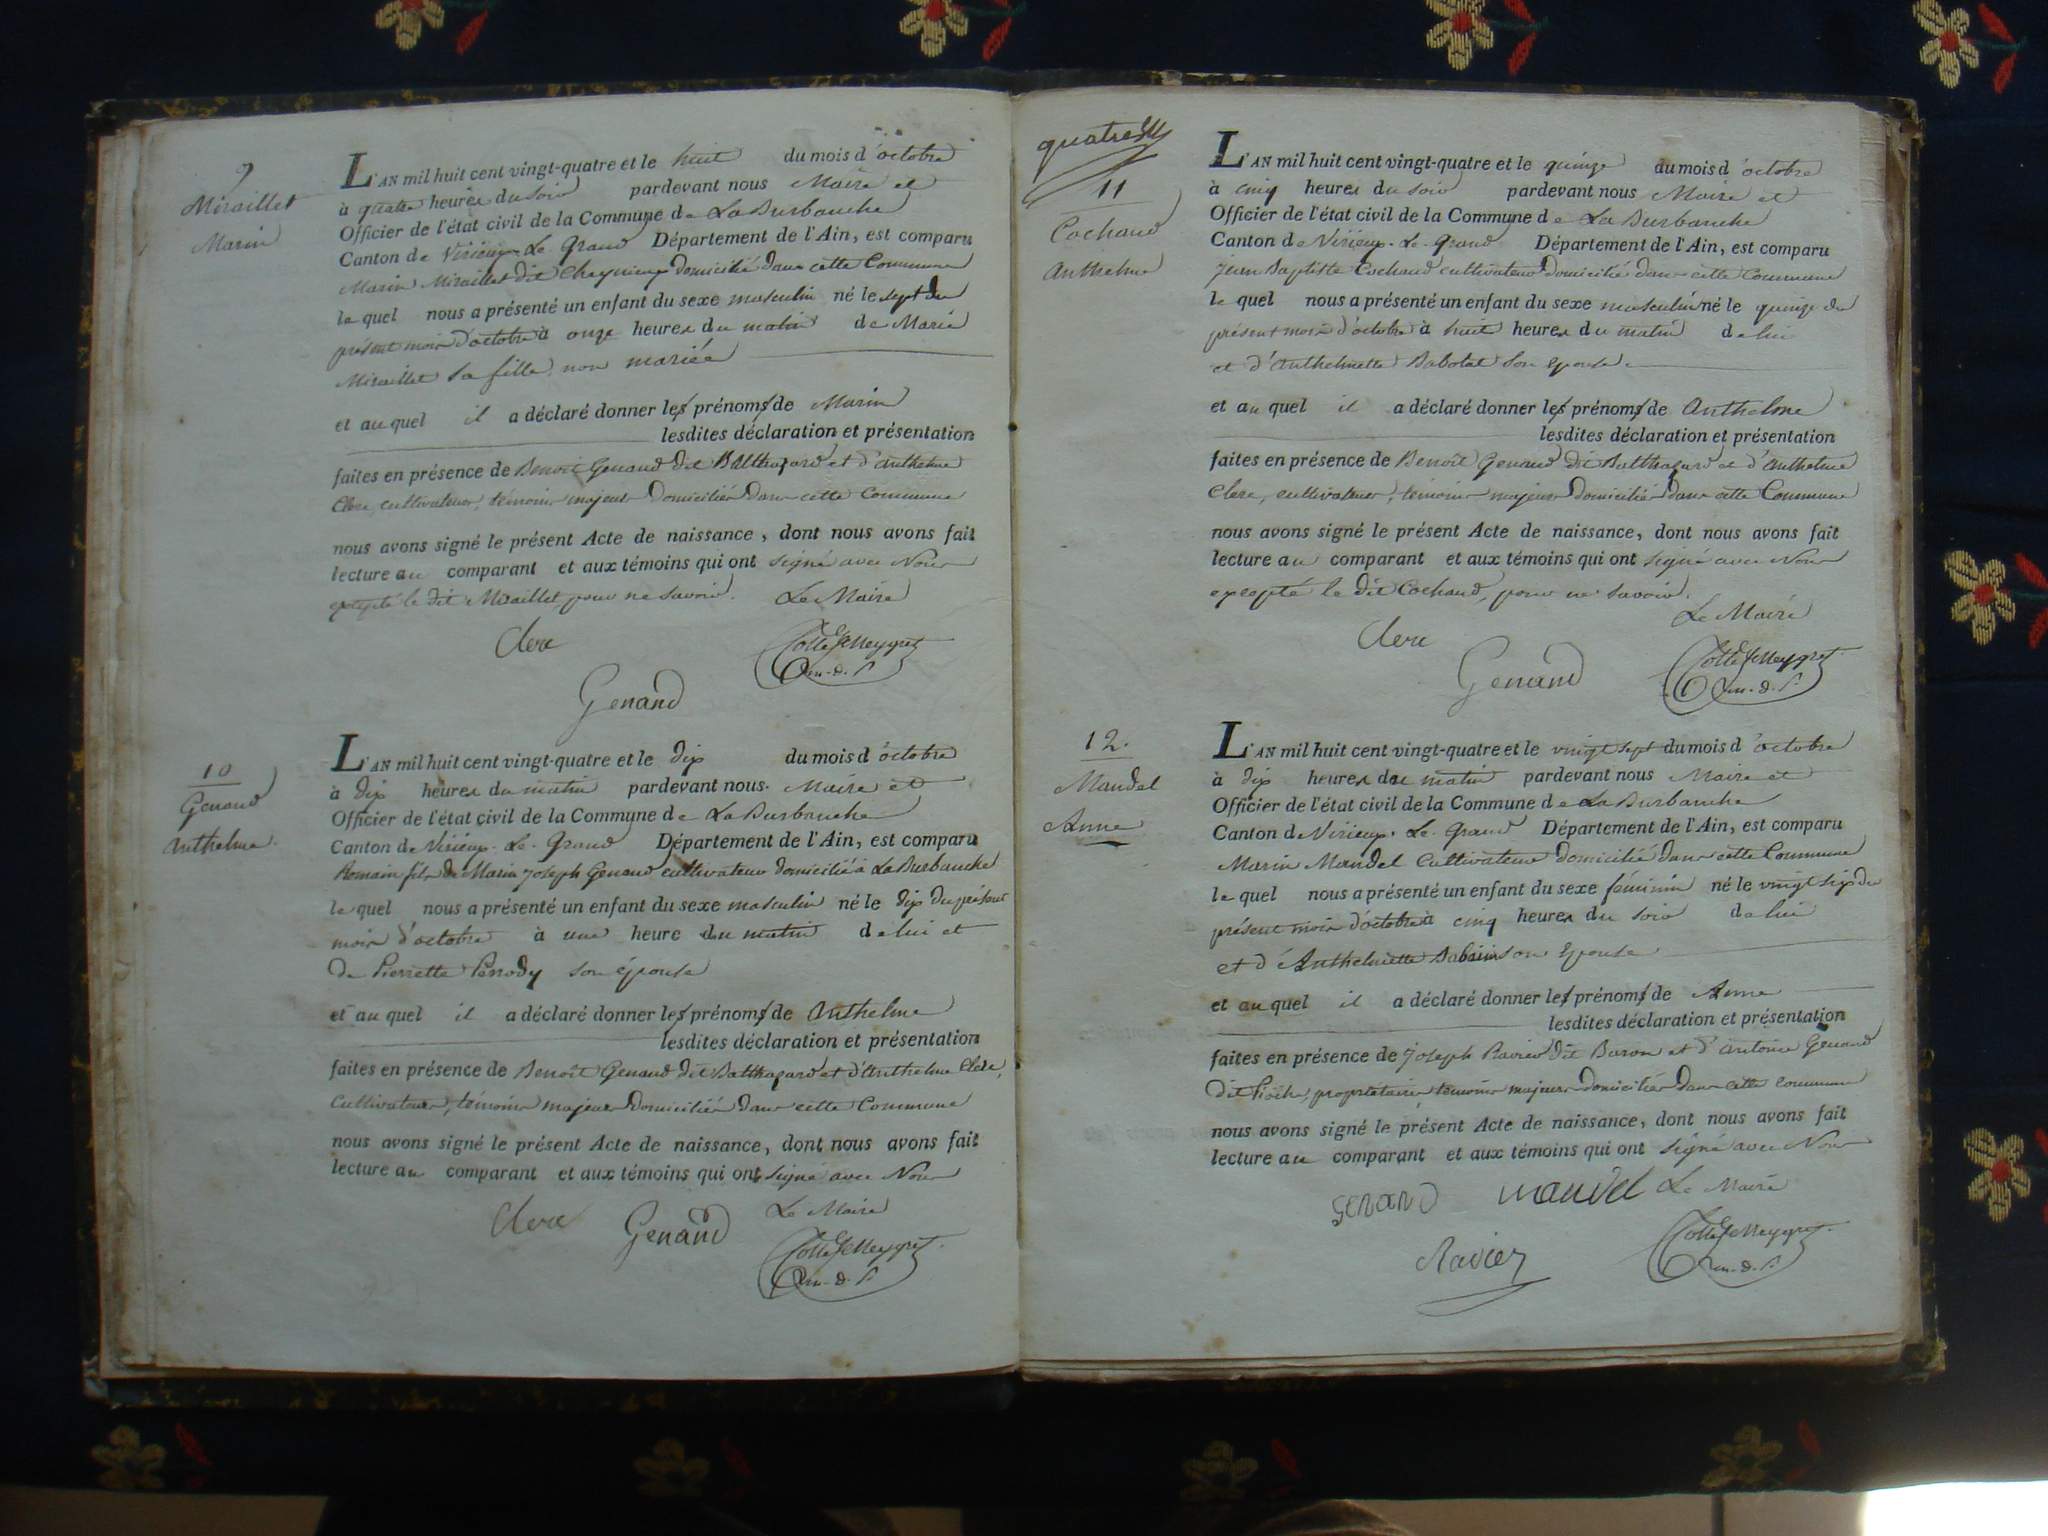 9
Miraillet
Marin
L'AN mil huit cent vingt-quatre et le huit du mois d'octobre
à quatre heures du soir pardevant nous Maire et
Officier de l'état civil de la Commune de La Burbanche
Canton de Virieux-Le-Grand Département de l'Ain, est comparu
Marin Miraillet dit Cheynieux domicilié dans cette Commune
le quel nous a présenté un enfant du sexe masculin né le sept du
présent mois d'octobre à onze heures du matin de Marie
Miraillet sa fille non mariée
et au quel il a déclaré donner les prénoms de Marin
lesdites déclaration et présentation
faites en présence de Benoit Genand dit Balthazard et d'anthelme
Clerc, cultivateurs, témoins majeurs domiciliés dans cette Commune
nous avons signé le présent Acte de naissance, dont nous avons fait
lecture au comparant et aux témoins qui ont signé avec Nous
excepté le dit Miraillet, pour ne savoir. Le Maire
Clerc
Genand
10
Genand
Anthelme.
L'AN mil huit cent vingt-quatre et le dix du mois d'octobre
à dix heures du matin pardevant nous. Maire et
Officier de l'état civil de la Commune de La Burbanche
Canton de Virieux-Le-Grand Département de l'Ain, est comparu
Romain fils de Marin joseph Genand cultivateur domicilié à La Burbanche
le quel nous a présenté un enfant du sexe masculin né le dix du présent
mois d'octobre à une heure du matin de lui et
de Pierrette Perrody son épouse
et au quel il a déclaré donner les prénoms de Anthelme
lesdites déclaration et présentation
faites en présence de Benoît Genand dit Balthazard et d'Anthelme Clerc,
Cultivateurs, témoins majeurs domiciliés dans cette Commune
nous avons signé le présent Acte de naissance, dont nous avons fait
lecture au comparant et aux témoins qui ont signé avec Nous
Clerc Genand Le Maire
quatre
11
Cochand
Anthelme
L'AN mil huit cent vingt-quatre et le quinze du mois d'octobre
à cinq heures du soir pardevant nous Maire et
Officier de l'état civil de la Commune de La Burbanche
Canton de Virieux-Le-Grand Département de l'Ain, est comparu
jean Baptiste Cochand cultivateur domicilié dans cette Commune
le quel nous a présenté un enfant du sexe masculin né le quinze du
présent mois d'octobre à huit heures du matin de lui
et d'Anthelmette Babolat son epouse.
et au quel il a déclaré donner les prénoms de Anthelme
lesdites déclaration et présentation
faites en présence de Benoît Genand dit Balthazard et d'Anthelme
Clerc, cultivateurs, témoins majeurs domiciliés dans cette Commune
nous avons signé le présent Acte de naissance, dont nous avons fait
lecture au comparant et aux témoins qui ont signé avec Nous
excepté le dit Cochand, pour ne savoir.
Le Maire
Clerc
Genand
12.
Mandel
Anne
L'AN mil huit cent vingt-quatre et le vingt sept du mois d'octobre
à dix heures du matin pardevant nous Maire et
Officier de l'état civil de la Commune de La Burbanche
Canton de Virieux-Le-Grand Département de l'Ain, est comparu
Marin Mandel Cultivateur domicilié dans cette Commune
le quel nous a présenté un enfant du sexe féminin né le vingt six du
présent mois d'octobre à cinq heures du soir de lui
et d'Anthelmette son Epouse
et au quel il a déclaré donner les prénoms de Anne
lesdites déclaration et présentation
faites en présence de joseph Ravier dit Baron et d'Antoine Genand
dit, propriétaires témoins majeurs domiciliés dans cette commune
nous avons signé le présent Acte de naissance, dont nous avons fait
lecture au comparant et aux témoins qui ont signé avec Nous
GENAND Mandel Le Maire
Ravier